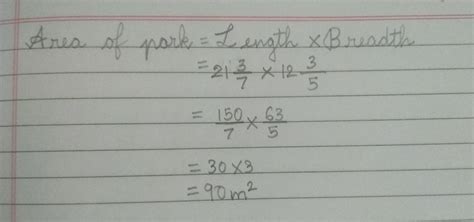 Area of park = Length × Breadth
= 21 3/7 × 12 3/5
= 150/7 × 63/5
= 30 × 3
= 90m²